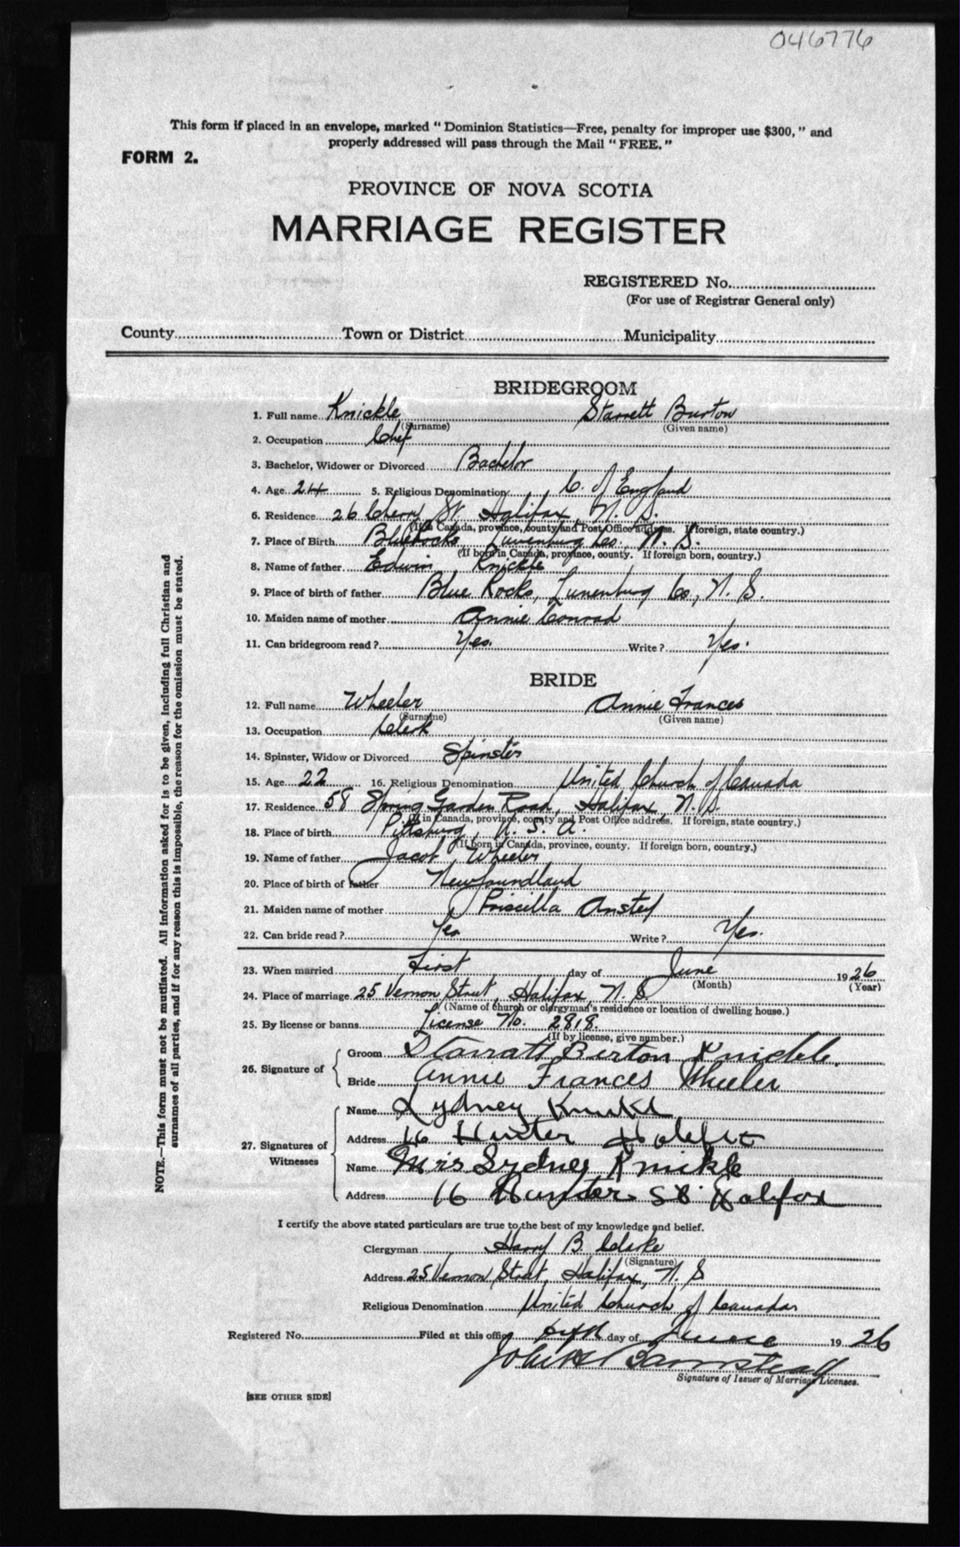 046776
This form if placed in an envelope, marked "Dominion Statistics—Free, penalty for improper use $300," and
properly addressed will pass through the Mail "FREE."
FORM 2.
PROVINCE OF NOVA SCOTIA
MARRIAGE REGISTER
REGISTERED No.
(For use of Registrar General only)
County Town or District Municipality
BRIDEGROOM
1. Full name Knickle Starrett Burton
(Surname) (Given name)
2. Occupation Chef
3. Bachelor, Widower or Divorced Bachelor
4. Age 24 5. Religious Denomination C. of England
6. Residence 26 Cherry St. Halifax, N. S.
(If in Canada, province, county and Post Office address. If foreign, state country.)
7. Place of Birth Blue Rocks Lunenburg Co., N. S.
(If born in Canada, province, county. If foreign born, country.)
8. Name of father Edwin Knickle
9. Place of birth of father Blue Rocks, Lunenburg Co., N. S.
10. Maiden name of mother Annie Conrad
11. Can bridegroom read? Yes. Write? Yes.
BRIDE
12. Full name Wheeler Annie Frances
(Surname) (Given name)
13. Occupation Clerk
14. Spinster, Widow or Divorced Spinster
15. Age 22 16. Religious Denomination United Church of Canada
17. Residence 58 Spring Garden Road, Halifax, N. S.
(If in Canada, province, county and Post Office address. If foreign, state country.)
18. Place of birth Pittsburg, U. S. A.
(If born in Canada, province, county. If foreign born, country.)
19. Name of father Jacob Wheeler
20. Place of birth of father Newfoundland
21. Maiden name of mother Priscilla Anstey
22. Can bride read? Yes Write? Yes.
23. When married First day of June 1926
(Month) (Year)
24. Place of marriage 25 Vernon Street, Halifax, N. S
(Name of church or clergyman's residence or location of dwelling house.)
25. By license or banns License No. 2818.
(If by license, give number.)
26. Signature of Groom Starratt Berton Knickle.
Bride Annie Frances Wheeler
27. Signatures of Witnesses
Name Sydney Knickle
Address 16 Hunter Halifax
Name Mrs Sydney Knickle
Address 16 Hunter St Halifax
I certify the above stated particulars are true to the best of my knowledge and belief.
Clergyman Harry B. Clarke
(Signature)
Address 25 Vernon Street, Halifax, N. S
Religious Denomination United Church of Canada
Registered No. Filed at this office day of June 1926
John H Barnstead
Signature of Issuer of Marriage Licenses.
[SEE OTHER SIDE]
NOTE.—This form must not be mutilated. All information asked for is to be given, including full Christian and
surnames of all parties, and if for any reason this is impossible, the reason for the omission must be stated.